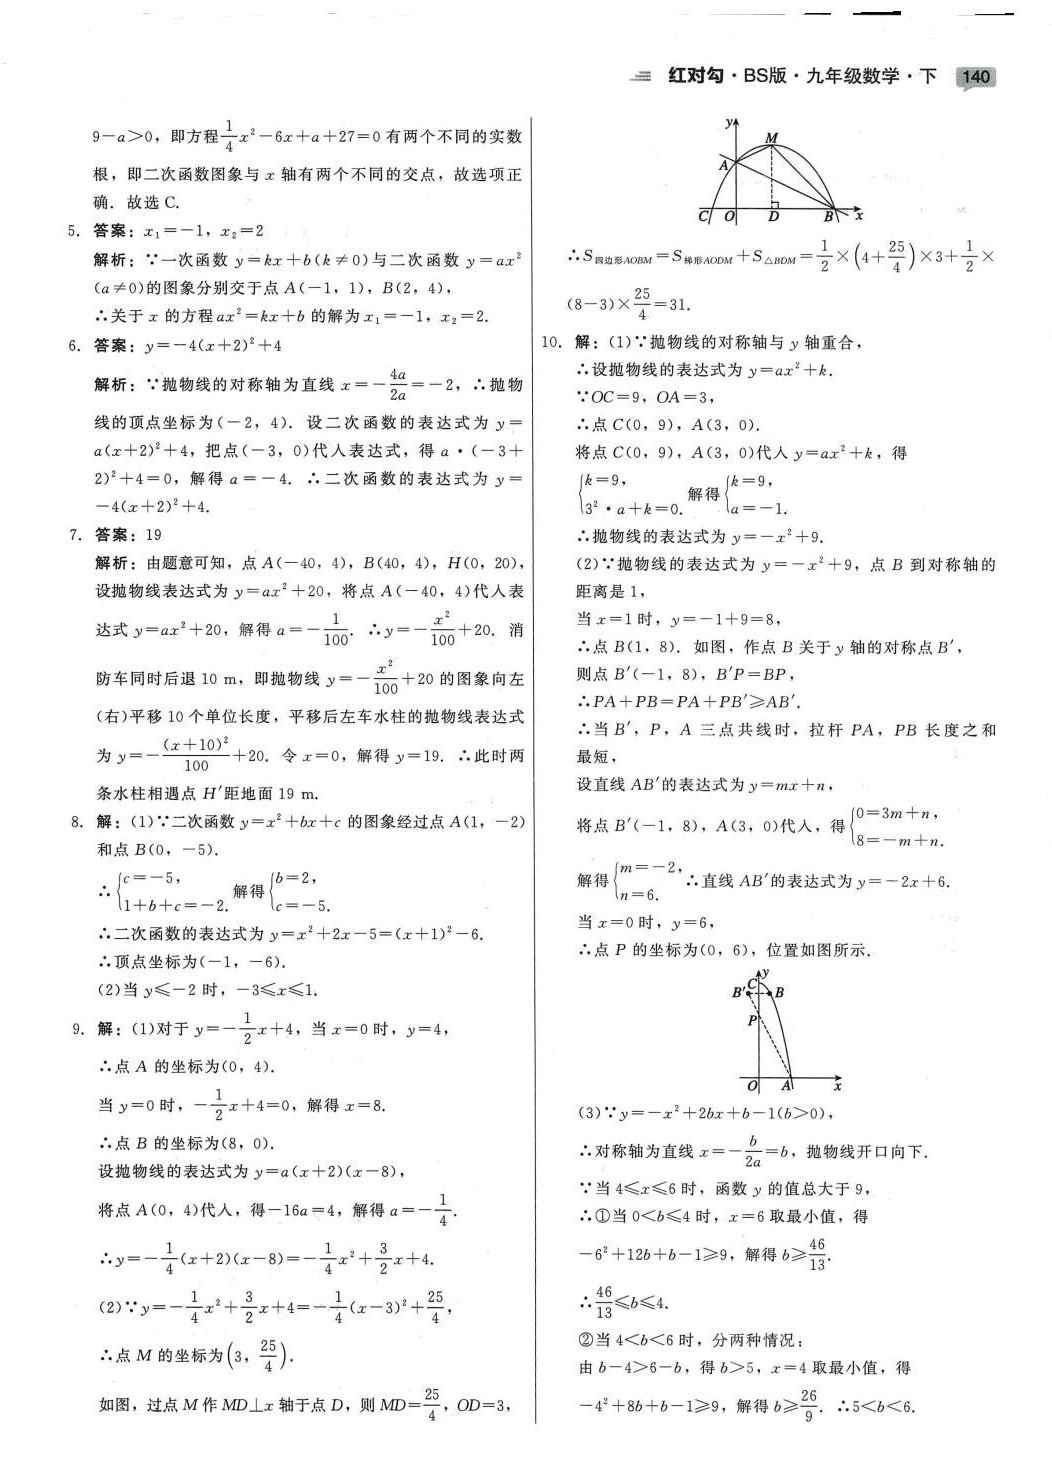 红对勾·BS版·九年级数学·下 140
9－a＞0，即方程1/4x²－6x＋a＋27＝0有两个不同的实数
根，即二次函数图象与 x 轴有两个不同的交点，故选项正
确．故选 C.
5. 答案：x₁＝－1，x₂＝2
解析：∵一次函数 y＝kx＋b(k≠0)与二次函数 y＝ax²
(a≠0)的图象分别交于点 A(－1，1)，B(2，4)，
∴关于 x 的方程 ax²＝kx＋b 的解为 x₁＝－1，x₂＝2.
6. 答案：y＝－4(x＋2)²＋4
解析：∵抛物线的对称轴为直线 x＝－4a/2a＝－2，∴抛物
线的顶点坐标为(－2，4)．设二次函数的表达式为 y＝
a(x＋2)²＋4，把点(－3，0)代入表达式，得 a·(－3＋
2)²＋4＝0，解得 a＝－4．∴二次函数的表达式为 y＝
－4(x＋2)²＋4.
7. 答案：19
解析：由题意可知，点 A(－40，4)，B(40，4)，H(0，20)，
设抛物线表达式为 y＝ax²＋20，将点 A(－40，4)代入表
达式 y＝ax²＋20，解得 a＝－1/100．∴y＝－x²/100＋20．消
防车同时后退 10 m，即抛物线 y＝－x²/100＋20 的图象向左
(右)平移 10 个单位长度，平移后左车水柱的抛物线表达式
为 y＝－(x＋10)²/100＋20．令 x＝0，解得 y＝19．∴此时两
条水柱相遇点 H′距地面 19 m.
8. 解：(1)∵二次函数 y＝x²＋bx＋c 的图象经过点 A(1，－2)
和点 B(0，－5).
∴{c＝－5， 1＋b＋c＝－2. 解得{b＝2， c＝－5.
∴二次函数的表达式为 y＝x²＋2x－5＝(x＋1)²－6.
∴顶点坐标为(－1，－6).
(2)当 y≤－2 时，－3≤x≤1.
9. 解：(1)对于 y＝－1/2x＋4，当 x＝0 时，y＝4，
∴点 A 的坐标为(0，4).
当 y＝0 时，－1/2x＋4＝0，解得 x＝8.
∴点 B 的坐标为(8，0).
设抛物线的表达式为 y＝a(x＋2)(x－8)，
将点 A(0，4)代入，得－16a＝4，解得 a＝－1/4.
∴y＝－1/4(x＋2)(x－8)＝－1/4x²＋3/2x＋4.
(2)∵y＝－1/4x²＋3/2x＋4＝－1/4(x－3)²＋25/4，
∴点 M 的坐标为(3，25/4).
如图，过点 M 作 MD⊥x 轴于点 D，则 MD＝25/4，OD＝3，
y
M
A
C O D B x
∴S四边形AOBM＝S梯形AODM＋S△BDM＝1/2×(4＋25/4)×3＋1/2×
(8－3)×25/4＝31.
10. 解：(1)∵抛物线的对称轴与 y 轴重合，
∴设抛物线的表达式为 y＝ax²＋k.
∵OC＝9，OA＝3，
∴点 C(0，9)，A(3，0).
将点 C(0，9)，A(3，0)代入 y＝ax²＋k，得
{k＝9， 3²·a＋k＝0. 解得{k＝9， a＝－1.
∴抛物线的表达式为 y＝－x²＋9.
(2)∵抛物线的表达式为 y＝－x²＋9，点 B 到对称轴的
距离是 1，
当 x＝1 时，y＝－1＋9＝8，
∴点 B(1，8)．如图，作点 B 关于 y 轴的对称点 B′，
则点 B′(－1，8)，B′P＝BP，
∴PA＋PB＝PA＋PB′≥AB′.
∴当 B′，P，A 三点共线时，拉杆 PA，PB 长度之和
最短，
设直线 AB′的表达式为 y＝mx＋n，
将点 B′(－1，8)，A(3，0)代入，得{0＝3m＋n， 8＝－m＋n.
解得{m＝－2， n＝6. ∴直线 AB′的表达式为 y＝－2x＋6.
当 x＝0 时，y＝6，
∴点 P 的坐标为(0，6)，位置如图所示.
y
C
B′ B
P
O A x
(3)∵y＝－x²＋2bx＋b－1(b＞0)，
∴对称轴为直线 x＝－b/2a＝b，抛物线开口向下.
∵当 4≤x≤6 时，函数 y 的值总大于 9，
∴①当 0＜b≤4 时，x＝6 取最小值，得
－6²＋12b＋b－1≥9，解得 b≥46/13.
∴46/13≤b≤4.
②当 4＜b＜6 时，分两种情况：
由 b－4＞6－b，得 b＞5，x＝4 取最小值，得
－4²＋8b＋b－1≥9，解得 b≥26/9．∴5＜b＜6.